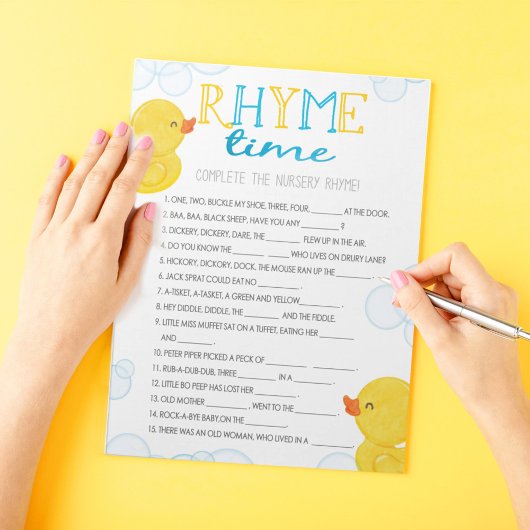 RHYME
time
COMPLETE THE NURSERY RHYME!
1. ONE, TWO, BUCKLE MY SHOE, THREE, FOUR, _______ AT THE DOOR.
2. BAA, BAA, BLACK SHEEP, HAVE YOU ANY _________ ?
3. DICKERY, DICKERY, DARE, THE ________ FLEW UP IN THE AIR.
4. DO YOU KNOW THE ______ ______ WHO LIVES ON DRURY LANE?
5. HICKORY, DICKORY, DOCK. THE MOUSE RAN UP THE ________ .
6. JACK SPRAT COULD EAT NO ________ .
7. A-TISKET, A-TASKET, A GREEN AND YELLOW ________ .
8. HEY DIDDLE, DIDDLE, THE ________ AND THE FIDDLE.
9. LITTLE MISS MUFFET SAT ON A TUFFET, EATING HER ________
AND ________ .
10. PETER PIPER PICKED A PECK OF ________ ________ .
11. RUB-A-DUB-DUB, THREE ________ IN A ________ .
12. LITTLE BO PEEP HAS LOST HER ________ .
13. OLD MOTHER ________ , WENT TO THE ________ .
14. ROCK-A-BYE BABY, ON THE ________ .
15. THERE WAS AN OLD WOMAN, WHO LIVED IN A ________ .